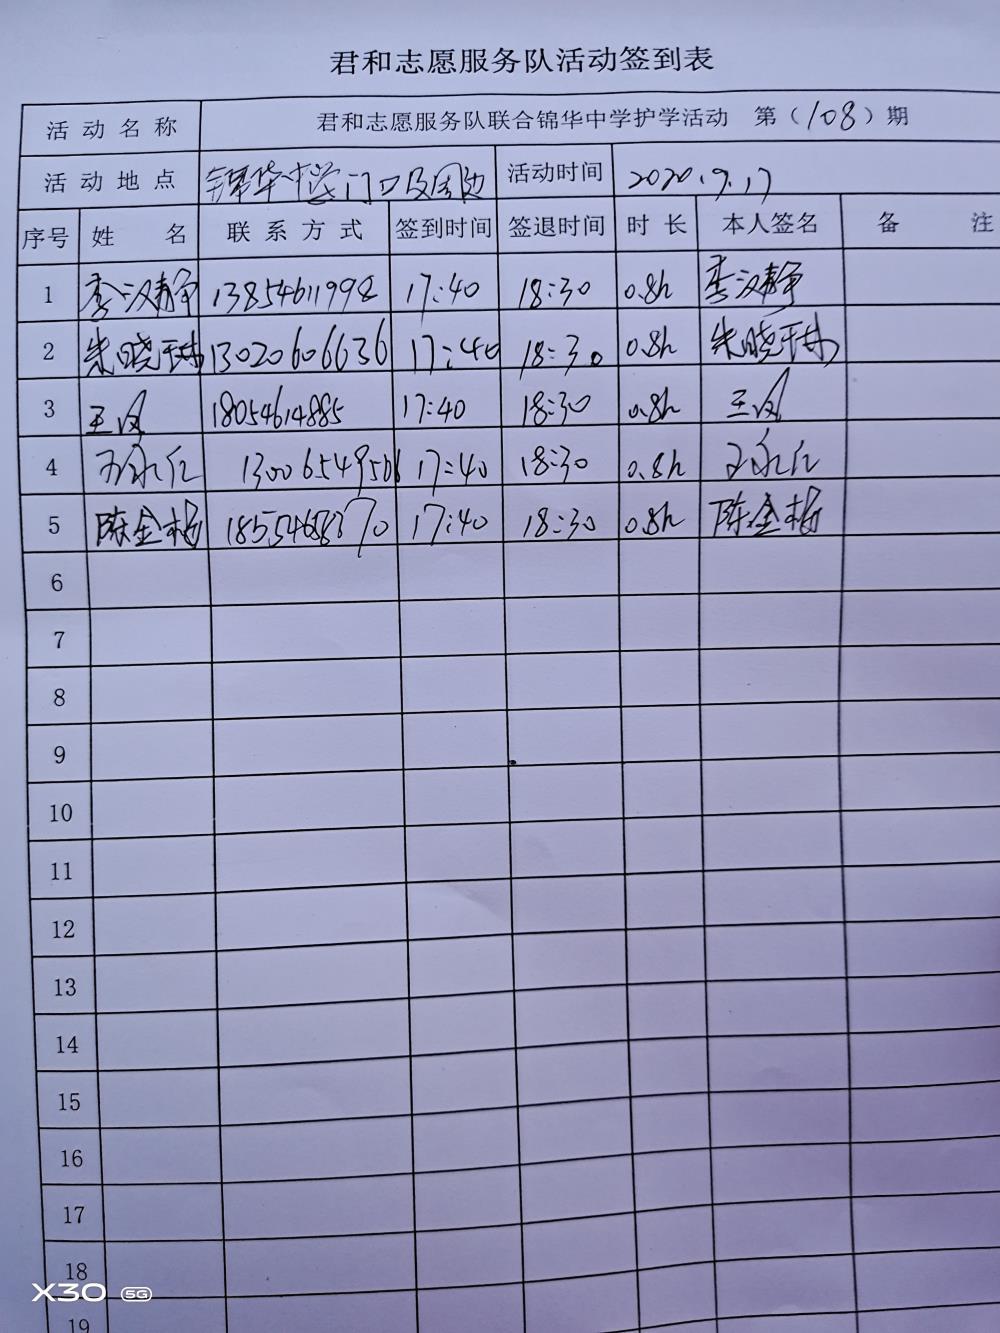 君和志愿服务队活动签到表
活动名称 君和志愿服务队联合锦华中学护学活动 第（108）期
活动地点 锦华中学门口及周边 活动时间 2020.9.17
序号 姓名 联系方式 签到时间 签退时间 时长 本人签名 备注
1 李汉静 13854611998 17:40 18:30 0.8h 李汉静
2 朱晓琳 13020606636 17:40 18:30 0.8h 朱晓琳
3 王凤 18054614885 17:40 18:30 0.8h 王凤
4 13006549506 17:40 18:30 0.8h
5 陈金梅 18554688370 17:40 18:30 0.8h 陈金梅
6
7
8
9
10
11
12
13
14
15
16
17
18
X30 5G
19